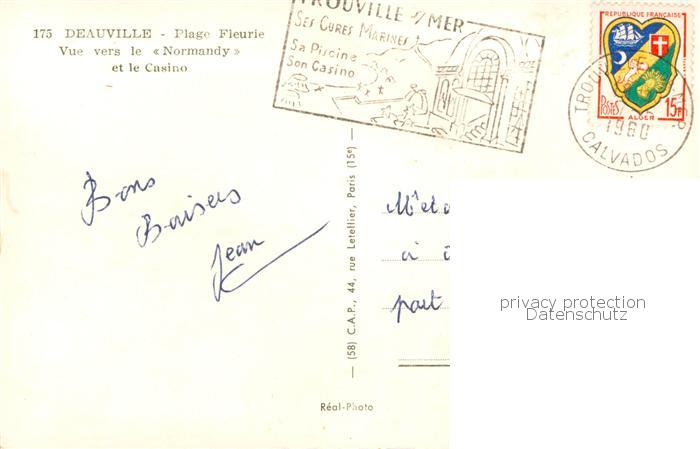 175 DEAUVILLE - Plage Fleurie
Vue vers le « Normandy »
et le Casino
TROUVILLE s/ MER
SES CURES MARINES
Sa Piscine
Son Casino
REPUBLIQUE FRANÇAISE
POSTES
15F
ALGER
TROUV
1960
CALVADOS
Bons
Baisers
Jean
(58) C.A.P., 44, rue Letellier, Paris (15e)
à
part
privacy protection
Datenschutz
Réal-Photo